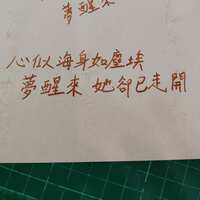 夢醒來
心似海身如塵埃
夢醒來 她卻已走開